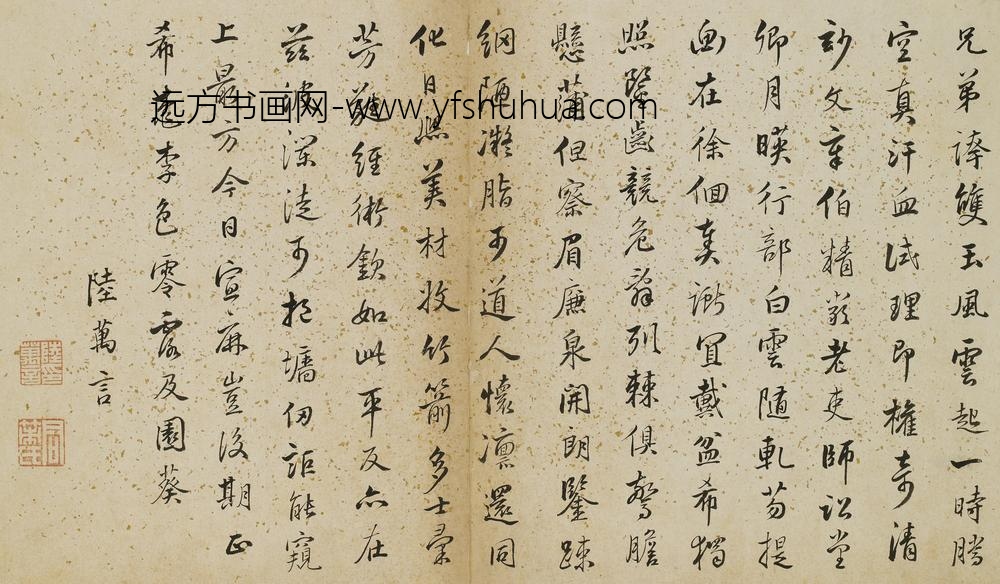 兄弟誇雙玉風雲起一時騰
空真汗血試理即權奇清
妙文章伯精嚴老吏師訟堂
卿月暎行部白雲隨軋芴提
幽在徐徊奏讞宜戴盆希獨
照鑿齒競危辭列棘俱驚膽
懸蒲但察眉廉泉開朗鑒疎
網陋凝脂可道人懷凛還同
化日熙美材收竹箭多士彙
芳蕤經術欽如此平反亦在
茲波瀾徒可挹墻仞詎能窺
上最方今日宣麻豈後期正
希李色零露及園葵
陸萬言
远方书画网-www.yfshuhua.com